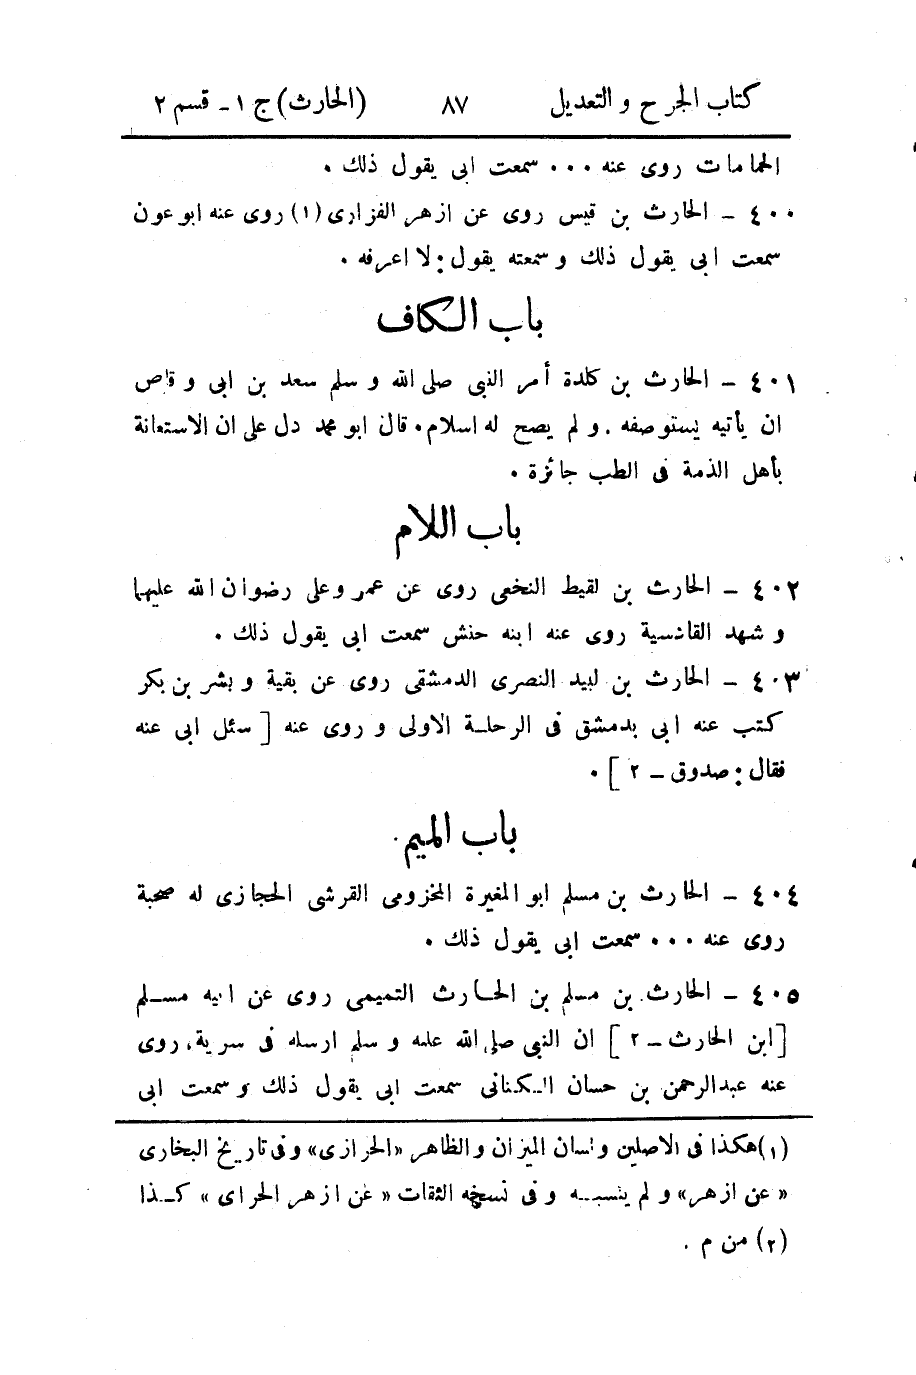 كتاب الجرح و التعديل ٨٧ (الحارث) ج ١ ـ قسم ٢
الحمامات روى عنه ٠٠٠ سمعت ابى يقول ذلك ٠
٤٠٠ ـ الحارث بن قيس روى عن ازهر الفزارى (١) روى عنه ابو عون
سمعت ابى يقول ذلك و سمعته يقول: لا اعرفه ٠
باب الكاف
٤٠١ ـ الحارث بن كلدة أمر النبى صلى الله و سلم سعد بن ابى و قاص
ان يأتيه يستوصفه ٠ و لم يصح له اسلام ٠ قال ابو محمد دل على ان الاستعانة
بأهل الذمة فى الطب جائزة ٠
باب اللام
٤٠٢ ـ الحارث بن لقيط النخعى روى عن عمر وعلى رضوان الله عليهما
و شهد القادسية روى عنه ابنه حنش سمعت ابى يقول ذلك ٠
٤٠٣ ـ الحارث بن لبيد النصرى الدمشقى روى عن بقية و بشر بن بكر
كتب عنه ابى بدمشق فى الرحلة الاولى و روى عنه [ سئل ابى عنه
فقال: صدوق ـ ٢ ] ٠
باب الميم
٤٠٤ ـ الحارث بن مسلم ابو المغيرة المخزومى القرشى الحجازى له صحبة
روى عنه ٠٠٠ سمعت ابى يقول ذلك ٠
٤٠٥ ـ الحارث بن مسلم بن الحارث التميمى روى عن ابيه مسلم
[ابن الحارث ـ ٢ ] ان النبى صلى الله عليه و سلم ارسله فى سرية، روى
عنه عبدالرحمن بن حسان الكنانى سمعت ابى يقول ذلك و سمعت ابى
(١) هكذا فى الاصلين ولسان الميزان والظاهر «الحرازى» وفى تاريخ البخارى
« عن ازهر» و لم ينسبه و فى نسخه الثقات « عن ازهر الحراى » كذا
(٢) من م ٠